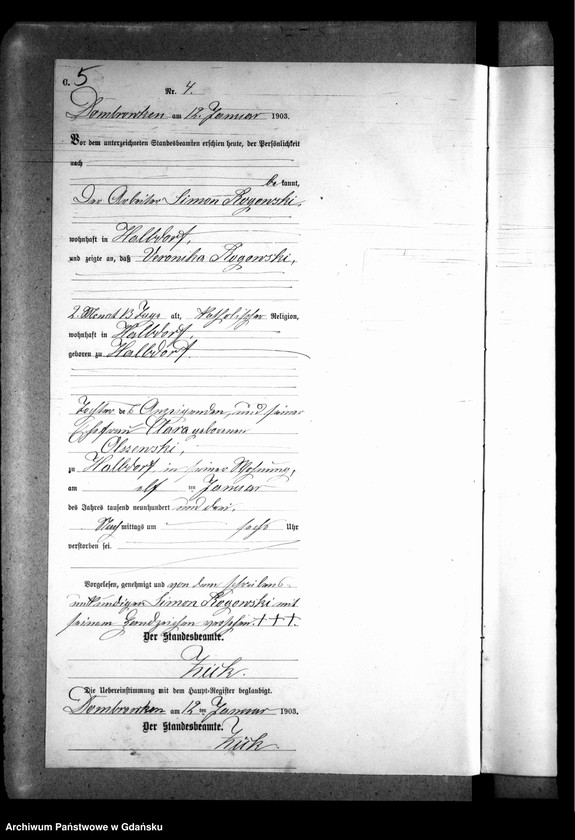 C. 5
Nr. 4.
Dombrowken am 12. Januar 1903.
Vor dem unterzeichneten Standesbeamten erschien heute, der Persönlichkeit
nach
be kannt,
Der Arbeiter Simon Rogowski,
wohnhaft in Halbdorf,
und zeigte an, daß Veronika Rogowski,
2 Monat 13 Tage alt, katholischer Religion,
wohnhaft in Halbdorf,
geboren zu Halbdorf
Tochter des Anzeigenden, und seiner
Ehefrau Clara geborenen
Olszenski,
zu Halbdorf in seiner Wohnung,
am elf ten Januar
des Jahres tausend neunhundert und drei,
Nach mittags um sechs Uhr
verstorben sei.
Vorgelesen, genehmigt und von dem schreibens-
unkundigen Simon Rogowski mit
seinem Handzeichen versehen. + + +.
Der Standesbeamte.
Zück.
Die Uebereinstimmung mit dem Haupt-Register beglaubigt.
Dombrowken am 12 ten Januar 1903.
Der Standesbeamte.
Zück.
Archiwum Państwowe w Gdańsku